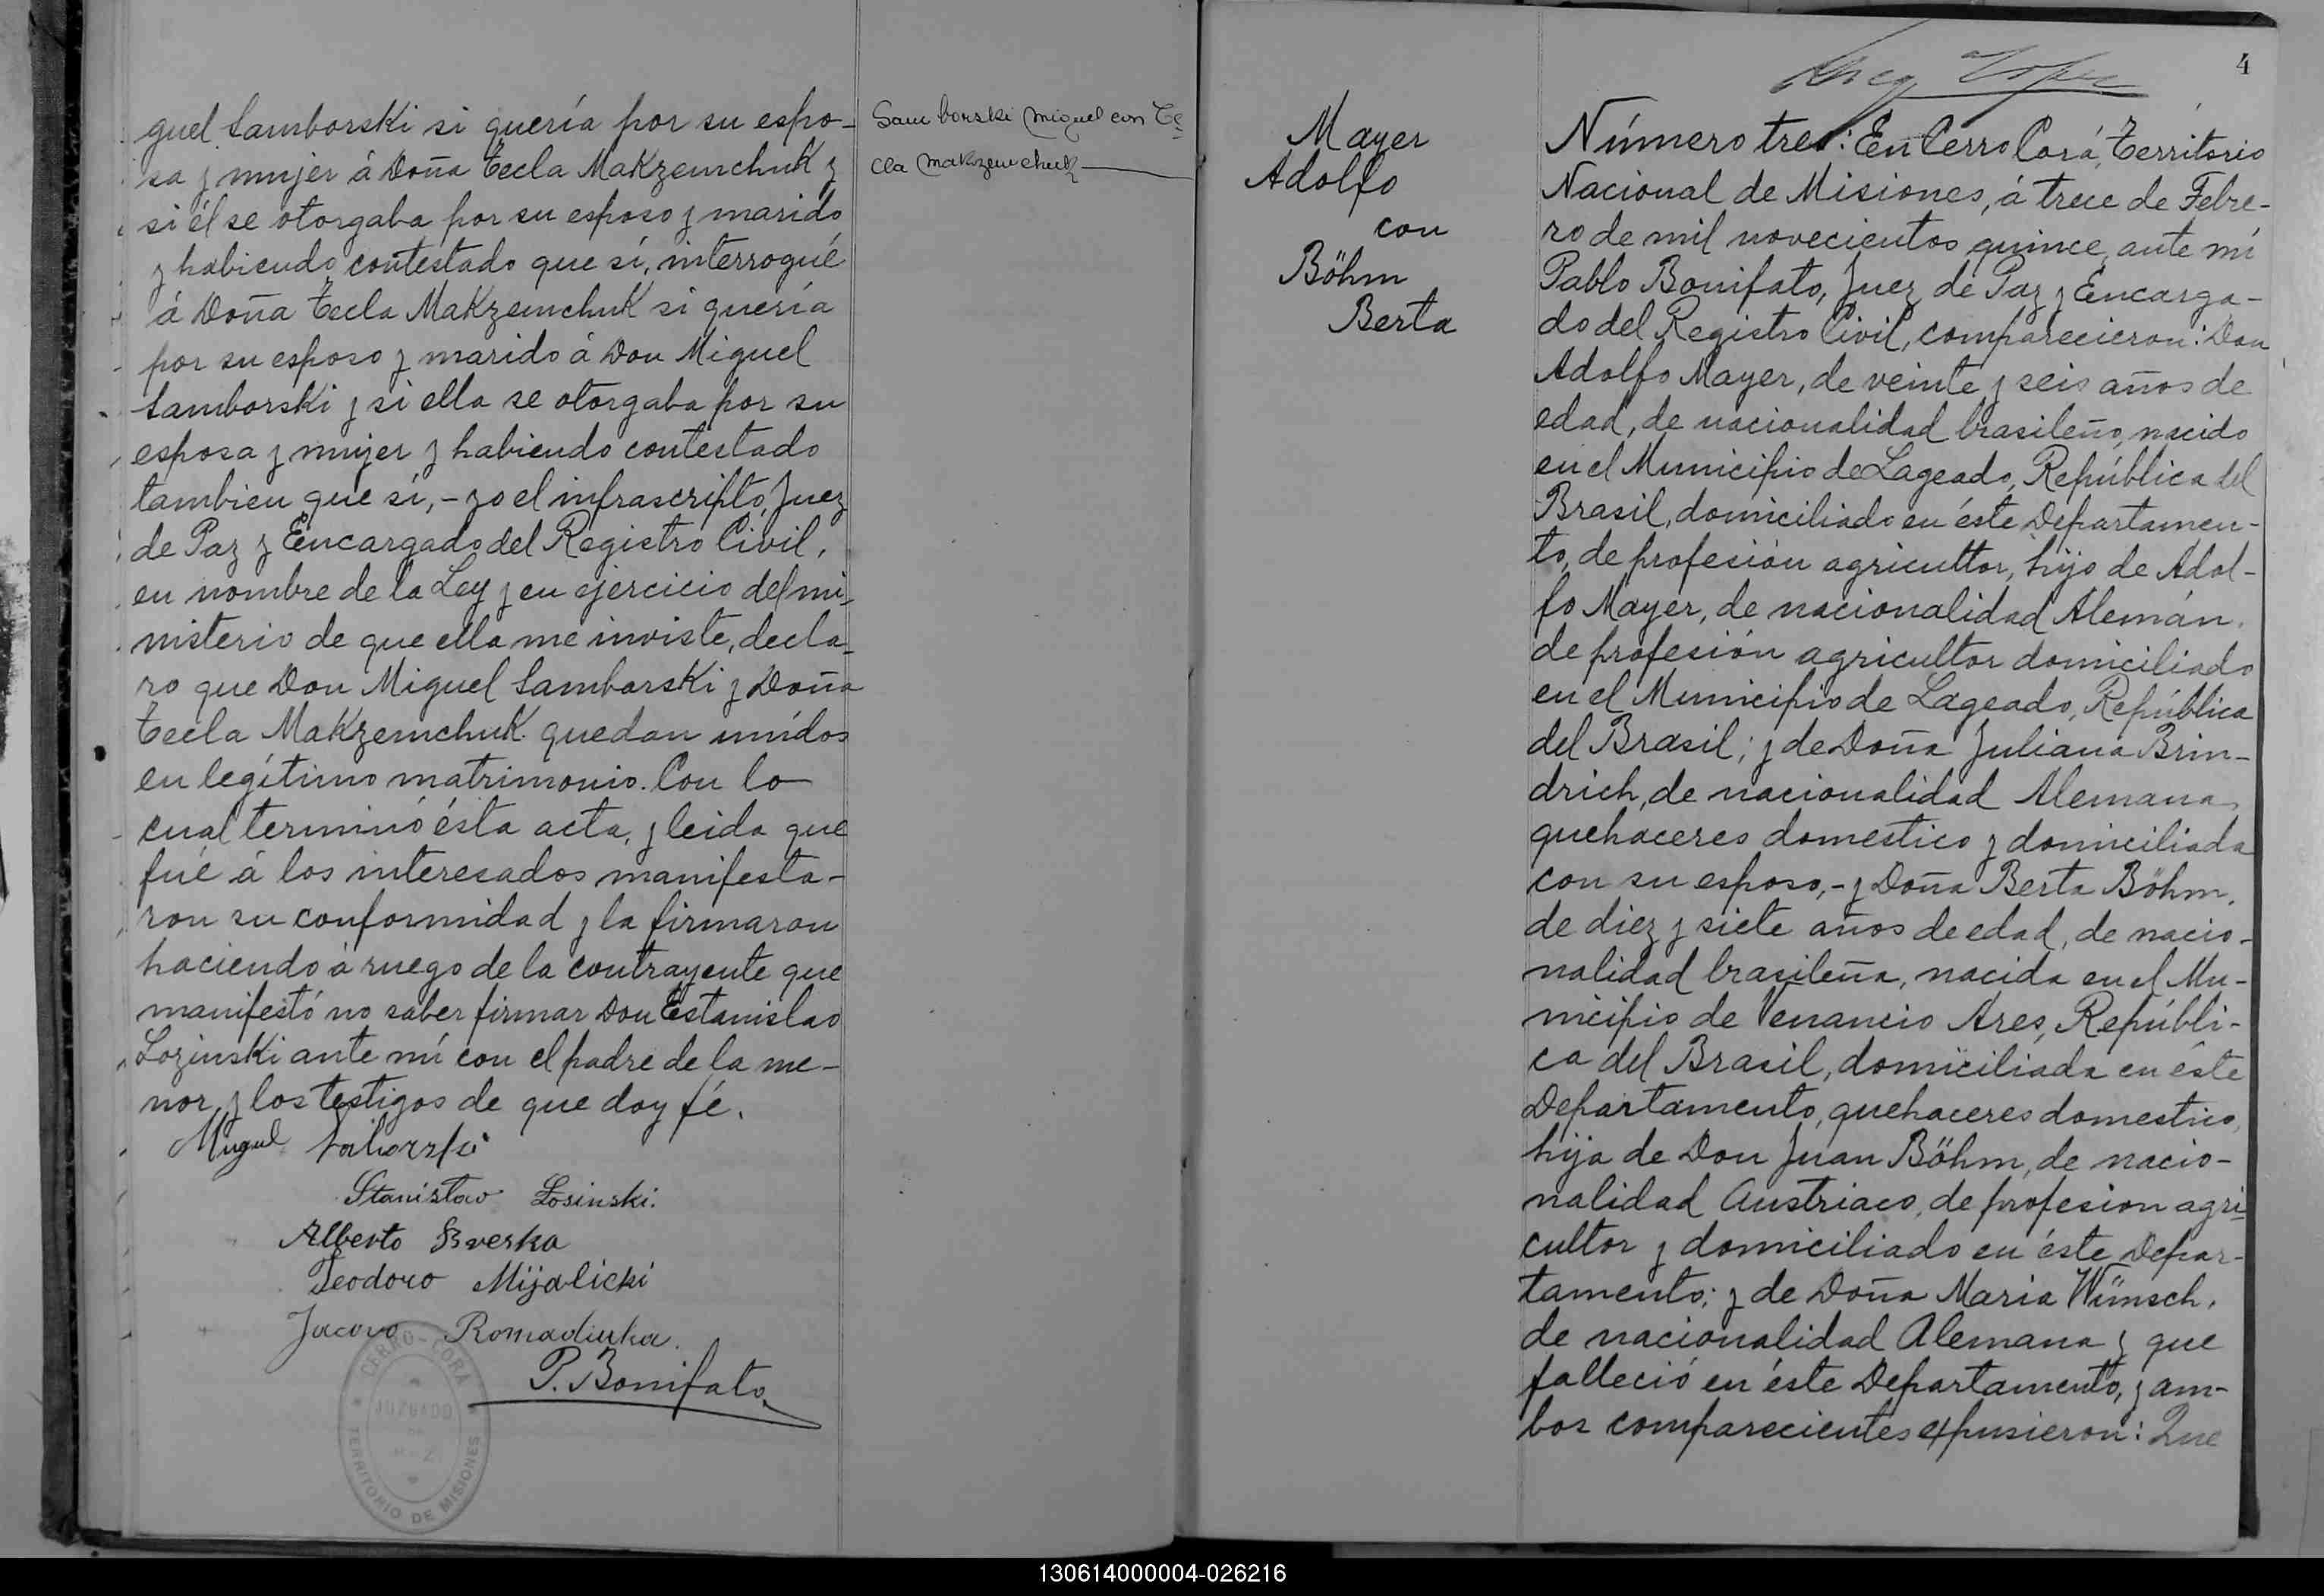 guel Samborski si quería por su espo-
sa y mujer á Doña Tecla Makzemchuk y
si él se otorgaba por su esposo y marido
y habiendo contestado que sí, interrogué
á Doña Tecla Makzemchuk si quería
por su esposo y marido á Don Miguel
Samborski y si ella se otorgaba por su
esposa y mujer y habiendo contestado
tambien que sí,- yo el infrascripto, Juez
de Paz y Encargado del Registro Civil,
en nombre de la Ley y en ejercicio del mi-
nisterio de que ella me inviste, decla-
ro que Don Miguel Samborski y Doña
Tecla Makzemchuk quedan unídos
en legítimo matrimonio. Con lo
cual terminó ésta acta, y leida que
fué á los interesados manifesta-
ron su conformidad y la firmaron
haciendo á ruego de la contrayente que
manifestó no saber firmar Don Estanislao
Lozinski ante mí con el padre de la me-
nor y los testigos de que doy fé.
Miguel
Stanislav Losinski.
Alberto Sverka
Teodoro Mijalicki
Jacovo Romadiuka.
P. Bonifato
CERRO-CORÁ
JUZGADO
DE
TERRITORIO DE MISIONES
Samborski Miguel con Te-
cla Makzemchuk
4
Mayer
Adolfo
con
Böhm
Berta
Número tres: En Cerro Corá, Territorio
Nacional de Misiones, á trece de Febre-
ro de mil novecientos quince, ante mí
Pablo Bonifato, Juez de Paz y Encarga-
do del Registro Civil, comparecieron: Don
Adolfo Mayer, de veinte y seis años de
edad, de nacionalidad brasileño, nacido
en el Municipio de Lageado, República del
Brasil, domiciliado en éste Departamen-
to, de profesión agricultor, hijo de Adol-
fo Mayer, de nacionalidad Alemán.
de profesión agricultor domiciliado
en el Municipio de Lageado, República
del Brasil; y de Doña Juliana Brin-
drich, de nacionalidad Alemana,
quehaceres domestico y domiciliada
con su esposo,- y Doña Berta Böhm,
de diez y siete años de edad, de nacio-
nalidad brasileña, nacida en el Mu-
nicipio de Venancio Ares, Repúbli-
ca del Brasil, domiciliada en éste
Departamento, quehaceres domestico,
hija de Don Juan Böhm, de nacio-
nalidad Austriaco, de profesion agri-
cultor y domiciliado en éste Depar-
tamento; y de Doña Maria Wünsch,
de nacionalidad Alemana y que
falleció en éste Departamento, y am-
bos comparecientes expusieron: Que
130614000004-026216